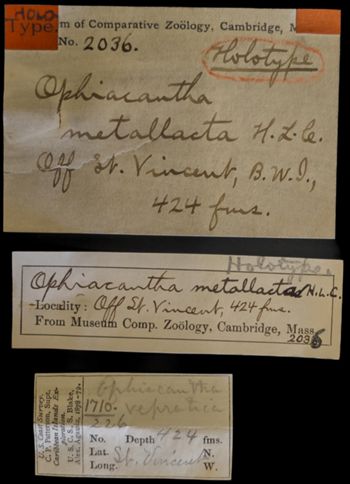 HOLO
Type.
m of Comparative Zoölogy, Cambridge, M
No. 2036.
Holotype
Ophiacantha
metallacta H.L.C.
Off St. Vincent, B.W.I.,
424 fms.
Holotype.
Ophiacantha metallacta H.L.C.
Locality: Off St. Vincent, 424 fms.
From Museum Comp. Zoölogy, Cambridge, Mass.
2036
U. S. Coast Survey,
C. P. Patterson, Supt.
Caribbean Islands Ex-
ploration.
U. S. C. S. S. Blake,
Alex. Agassiz, 1878-79.
Ophiacantha
1710.
226
No. Depth 424 fms.
Lat. St. Vincent N.
Long. W.